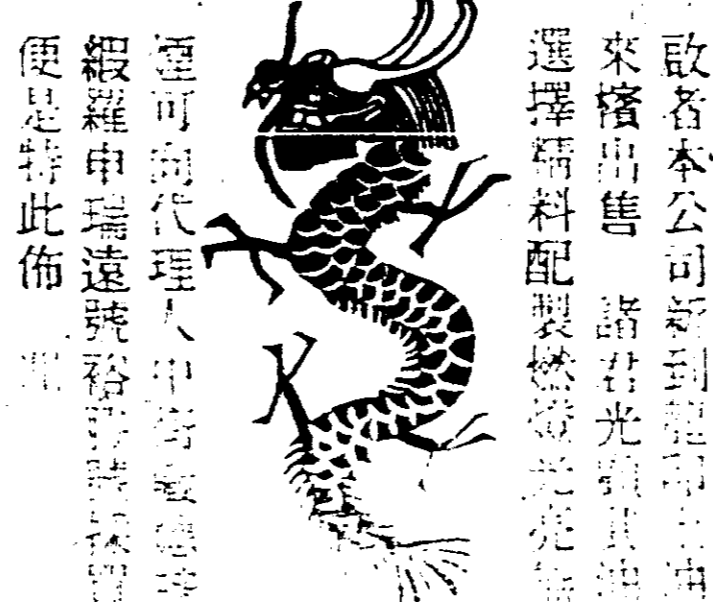 啟者本公司新到龍印土油
來檳出售 諸君光顧其油
選擇精料配製燃燈光亮無
煙可向代理人中街
緞羅申瑞遠號裕號採買
便是特此佈